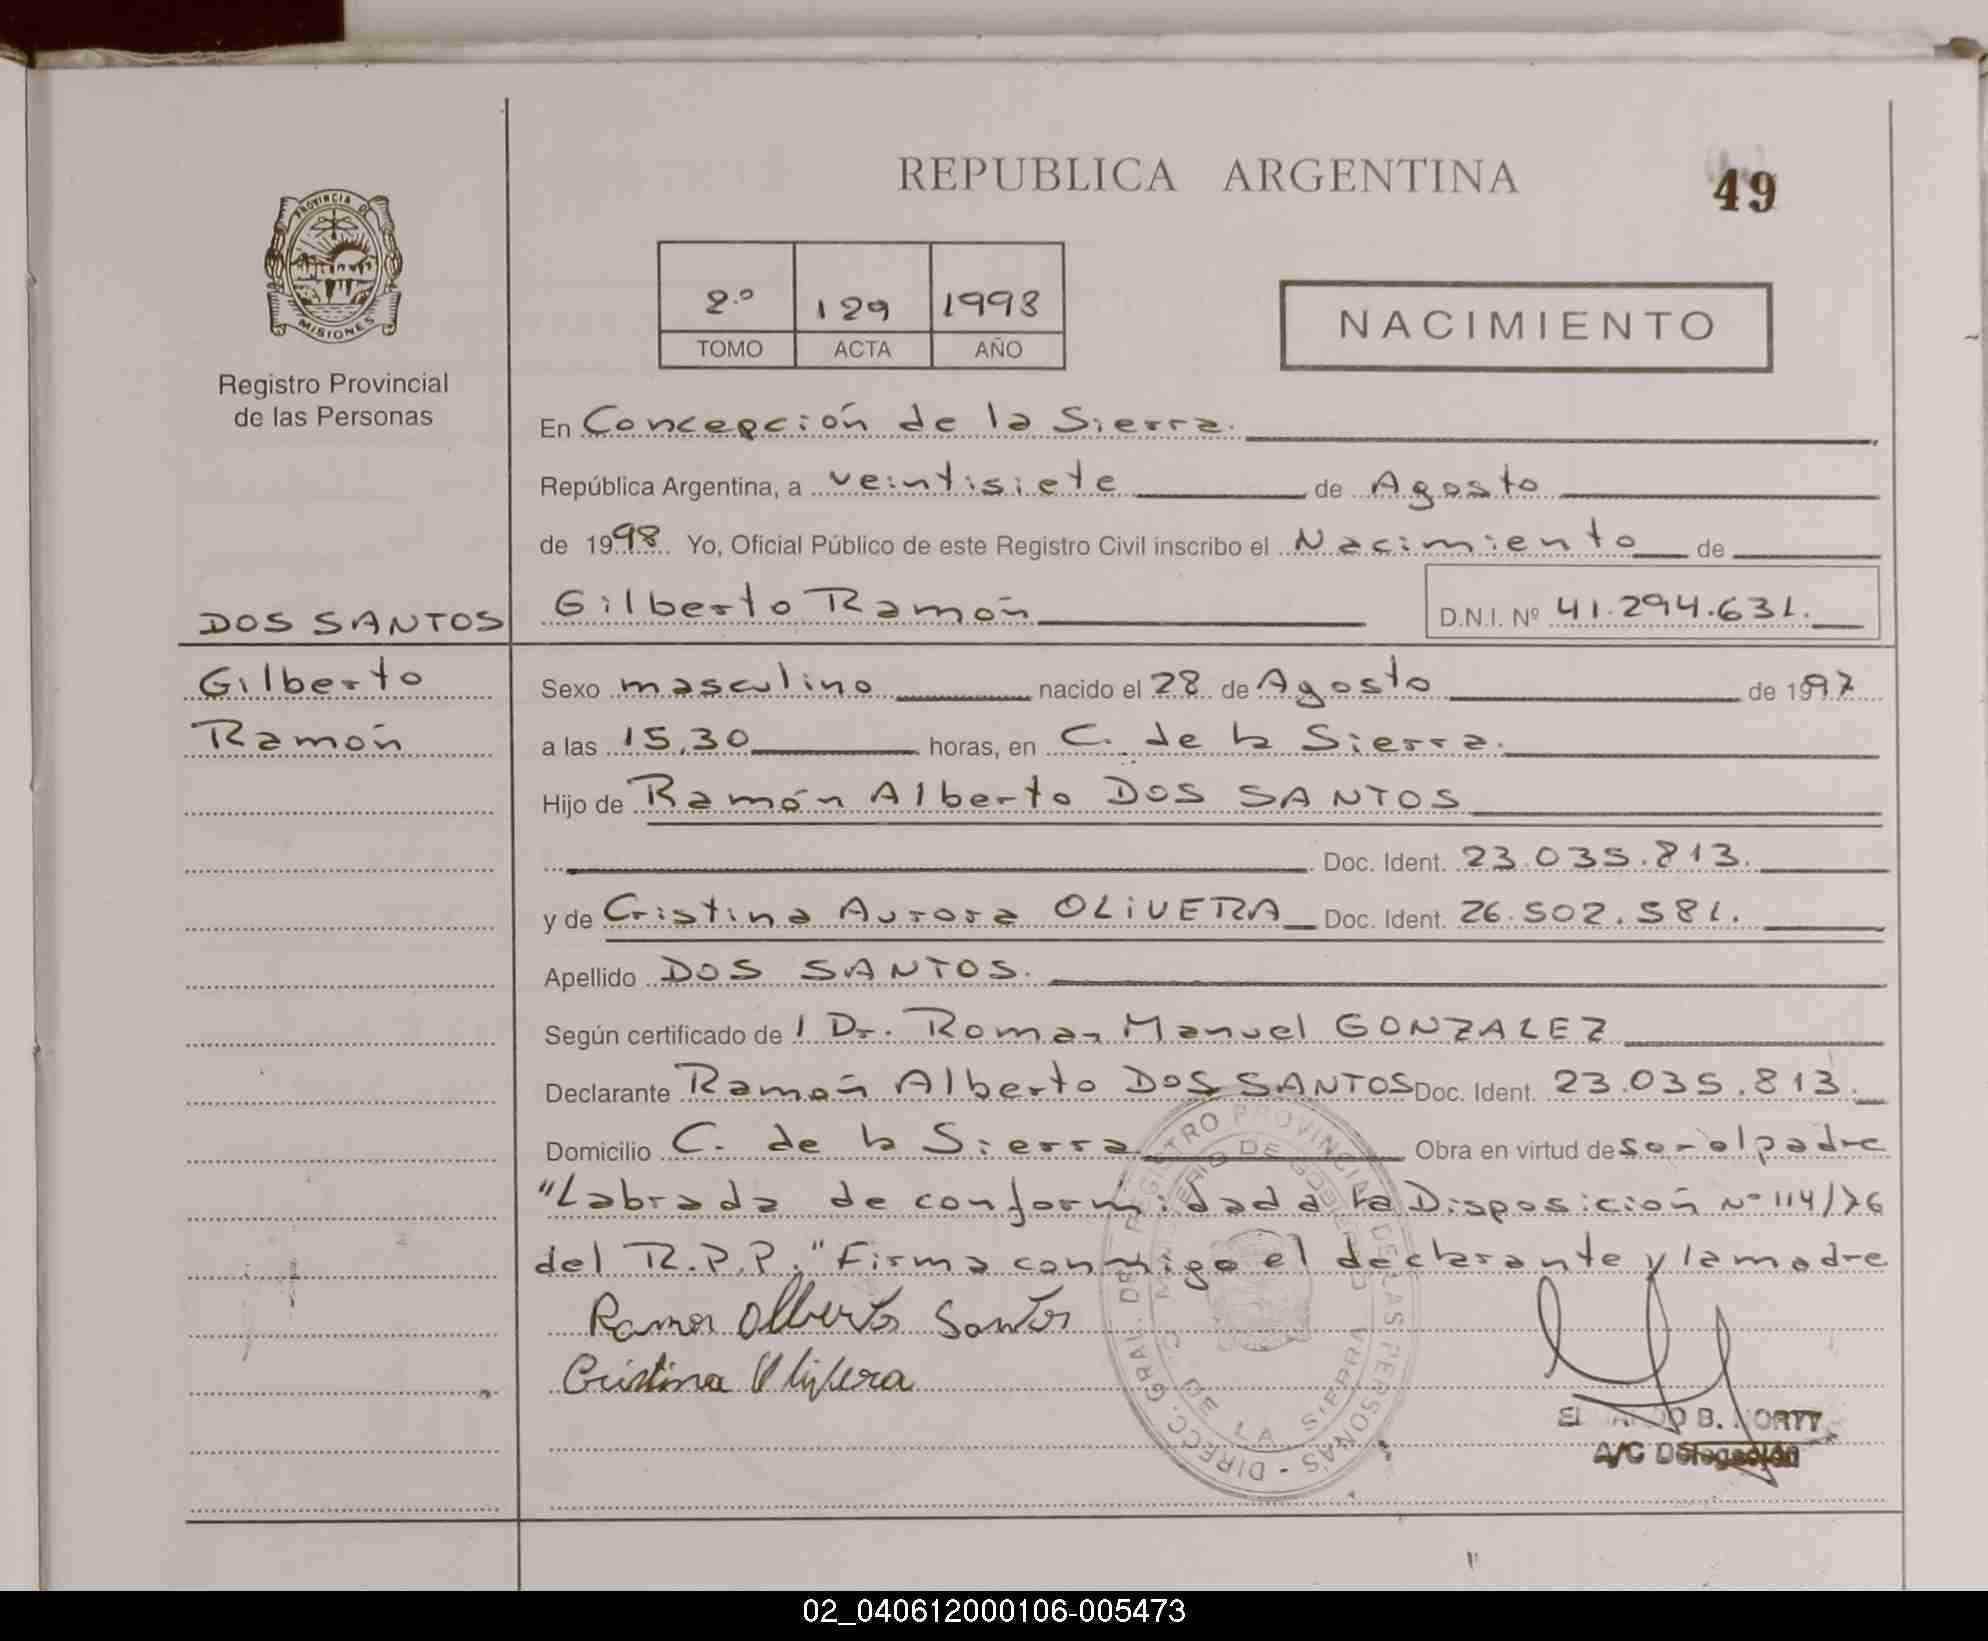 REPUBLICA ARGENTINA
49
PROVINCIA DE
MISIONES
Registro Provincial
de las Personas
2.º 129 1998
TOMO ACTA AÑO
NACIMIENTO
En Concepción de la Sierra.
República Argentina, a veintisiete de Agosto
de 1998 Yo, Oficial Público de este Registro Civil inscribo el Nacimiento de
Gilberto Ramón
D.N.I. Nº 41.294.631.
DOS SANTOS
Gilberto
Ramón
Sexo masculino nacido el 28 de Agosto de 1997
a las 15,30 horas, en C. de la Sierra.
Hijo de Ramón Alberto DOS SANTOS
Doc. Ident. 23.035.813.
y de Cristina Aurora OLIVERA Doc. Ident. 26.502.581.
Apellido DOS SANTOS.
Según certificado de l Dr. Roman Manuel GONZALEZ
Declarante Ramón Alberto DOS SANTOS Doc. Ident. 23.035.813.
Domicilio C. de la Sierra Obra en virtud de ser el padre
"Labrada de conformidad a la Disposición Nº 114/76
del R.P.P." Firma conmigo el declarante y la madre
Ramon Alberto Santos
Cristina Olivera
DIRECC. GRAL. DE REGISTRO PROVINCIAL DE LAS PERSONAS
MINISTERIO DE GOBIERNO
C. DE LA SIERRA
B.
A/C Delegación
02_040612000106-005473